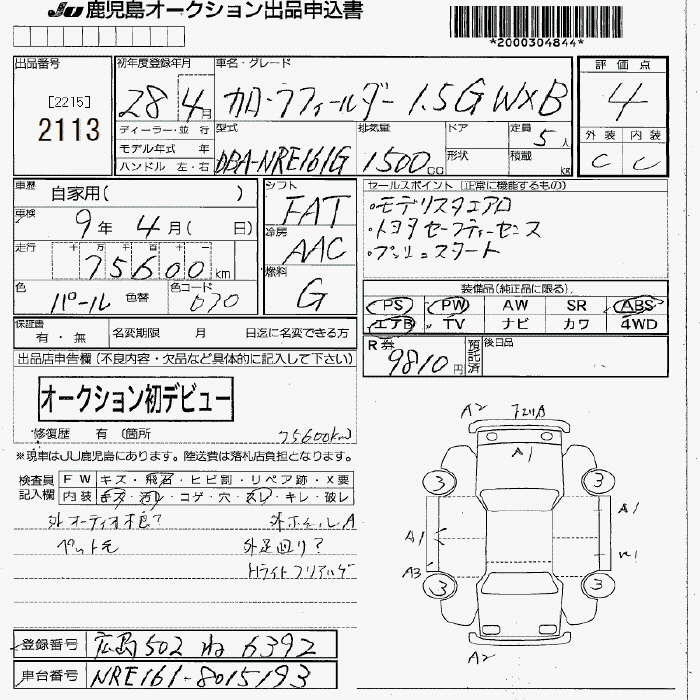 JU 鹿児島オークション出品申込書
*2000304844*
出品番号
[2215]
2113
初年度登録年月
28 4月
車名・グレード
カローラフィールダー 1.5G W×B
評価点
4
外装 内装
C C
ディーラー・並行
モデル年式 年
ハンドル 左・右
型式
DBA-NRE161G
排気量
1500cc
ドア
形状
定員
5人
積載
kg
車歴
自家用( )
車検
9年 4月( 日)
走行
十 万 千 百 十 一
75600km
色
パール
色替
色コード
070
シフト
FAT
冷房
AAC
燃料
G
セールスポイント (正常に機能するもの)
・モデリスタエアロ
・トヨタセーフティーセンス
・プッシュスタート
装備品(純正品に限る)
PS PW AW SR ABS
エアB TV ナビ カワ 4WD
保証書
有・無
名変期限 月 日迄に名変できる方
R券
9810円
預託済
後日品
出品店申告欄(不良内容・欠品など具体的に記入して下さい)
オークション初デビュー
修復歴 有 (箇所
75600km)
※現車はJU鹿児島にあります。陸送費は落札店負担となります。
検査員記入欄
FW キズ・飛石・ヒビ割・リペア跡・X要
内装 キズ・汚レ・コゲ・穴・スレ・キレ・破レ
外オーディオ不良? 外ホイールA
ペット毛 外足回り?
A2
A1
3 3
A1 A1
A3
3 3
A2
登録番号 広島 502 ね 6392
車台番号 NRE161-8015193